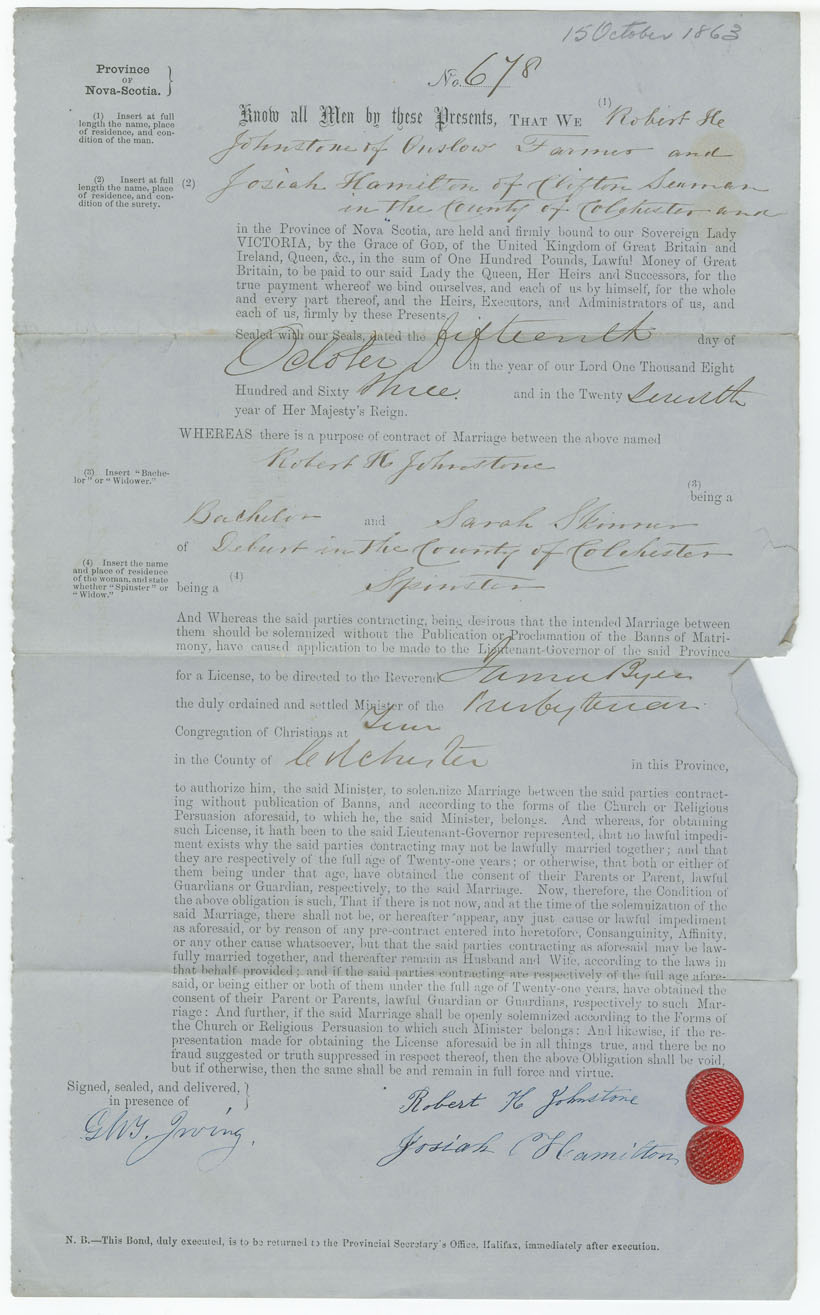 15 October 1863
Province
OF
Nova-Scotia.
No. 678
(1) Insert at full
length the name, place
of residence, and con-
dition of the man.
Know all Men by these Presents, THAT WE (1) Robert H
Johnstone of Onslow Farmer and
(2) Insert at full
length the name, place
of residence, and con-
dition of the surety.
(2) Josiah Hamilton of Clifton Seaman
in the County of Colchester and
in the Province of Nova Scotia, are held and firmly bound to our Sovereign Lady
VICTORIA, by the Grace of GOD, of the United Kingdom of Great Britain and
Ireland, Queen, &c., in the sum of One Hundred Pounds, Lawful Money of Great
Britain, to be paid to our said Lady the Queen, Her Heirs and Successors, for the
true payment whereof we bind ourselves, and each of us by himself, for the whole
and every part thereof, and the Heirs, Executors, and Administrators of us, and
each of us, firmly by these Presents.
Sealed with our Seals, dated the fifteenth day of
October in the year of our Lord One Thousand Eight
Hundred and Sixty three. and in the Twenty seventh
year of Her Majesty's Reign.
WHEREAS there is a purpose of contract of Marriage between the above named
Robert H Johnstone
(3) Insert "Bache-
lor" or "Widower."
(3)
being a
Bachelor and Sarah Skinner
of Debert in the County of Colchester
(4) Insert the name
and place of residence
of the woman, and state
whether "Spinster" or
"Widow."
being a (4) Spinster
And Whereas the said parties contracting, being desirous that the intended Marriage between
them should be solemnized without the Publication or Proclamation of the Banns of Matri-
mony, have caused application to be made to the Lieutenant-Governor of the said Province
for a License, to be directed to the Reverend James Byers
the duly ordained and settled Minister of the Presbyterian
Congregation of Christians at
in the County of Colchester in this Province,
to authorize him, the said Minister, to solemnize Marriage between the said parties contract-
ing without publication of Banns, and according to the forms of the Church or Religious
Persuasion aforesaid, to which he, the said Minister, belongs. And whereas, for obtaining
such License, it hath been to the said Lieutenant-Governor represented, that no lawful impedi-
ment exists why the said parties contracting may not be lawfully married together; and that
they are respectively of the full age of Twenty-one years; or otherwise, that both or either of
them being under that age, have obtained the consent of their Parents or Parent, lawful
Guardians or Guardian, respectively, to the said Marriage. Now, therefore, the Condition of
the above obligation is such, That if there is not now, and at the time of the solemnization of the
said Marriage, there shall not be, or hereafter appear, any just cause or lawful impediment
as aforesaid, or by reason of any pre-contract entered into heretofore, Consanguinity, Affinity,
or any other cause whatsoever, but that the said parties contracting as aforesaid may be law-
fully married together, and thereafter remain as Husband and Wife, according to the laws in
that behalf provided; and if the said parties contracting are respectively of the full age afore-
said, or being either or both of them under the full age of Twenty-one years, have obtained the
consent of their Parent or Parents, lawful Guardian or Guardians, respectively to such Mar-
riage: And further, if the said Marriage shall be openly solemnized according to the Forms of
the Church or Religious Persuasion to which such Minister belongs: And likewise, if the re-
presentation made for obtaining the License aforesaid be in all things true, and there be no
fraud suggested or truth suppressed in respect thereof, then the above Obligation shall be void,
but if otherwise, then the same shall be and remain in full force and virtue.
Signed, sealed, and delivered,
in presence of
Robert H Johnstone
Irving,
Josiah Hamilton
N. B.—This Bond, duly executed, is to be returned to the Provincial Secretary's Office, Halifax, immediately after execution.